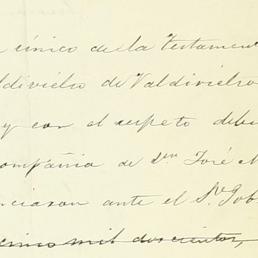 único de la Testament
aldivielso de Valdivielso
y con el respeto debi
compañia de Dn José M
nciaron ante el Sr Gob
cinco mil doscientos,